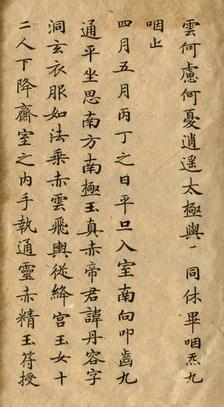 雲何慮何憂逍遥太極與一同休畢咽炁九
咽止
四月五月丙丁之日平旦入室南向叩齒九
通平坐思南方南極玉真赤帝君諱丹容字
洞玄衣服如法乘赤雲飛輿從絳宮玉女十
二人下降齋室之内手執通靈赤精玉符授